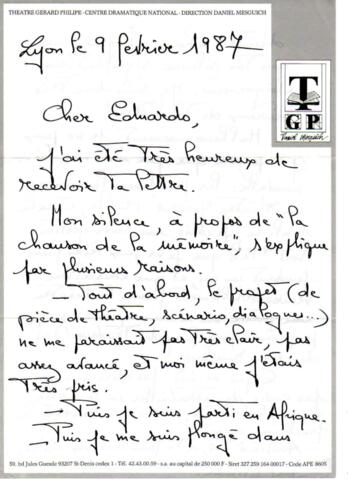 THEATRE GERARD PHILIPE - CENTRE DRAMATIQUE NATIONAL - DIRECTION DANIEL MESGUICH
Lyon le 9 février 1987
T
G P
Cher Eduardo,
J'ai été très heureux de
recevoir ta lettre.
Mon silence, à propos de "la
chanson de la mémoire", s'explique
par plusieurs raisons.
— Tout d'abord, le projet (de
pièce de théâtre, scénario, dialogues...)
ne me paraissait pas très clair, pas
assez avancé, et moi même j'étais
très pris.
— Puis je suis parti en Afrique.
— Puis je me suis plongé dans
59, bd Jules Guesde 93207 St-Denis cedex 1 - Tél. 42.43.00.59 - s.a. au capital de 250 000 F - Siret 327 259 164 00017 - Code APE 8605